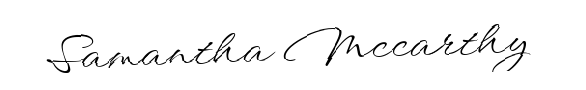 Samantha Mccarthy